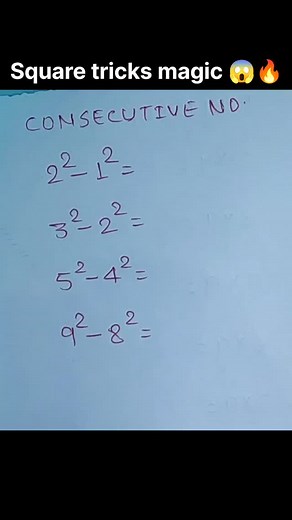 Square tricks magic 😱🔥
CONSECUTIVE NO.
2² - 1² =
3² - 2² =
5² - 4² =
9² - 8² =